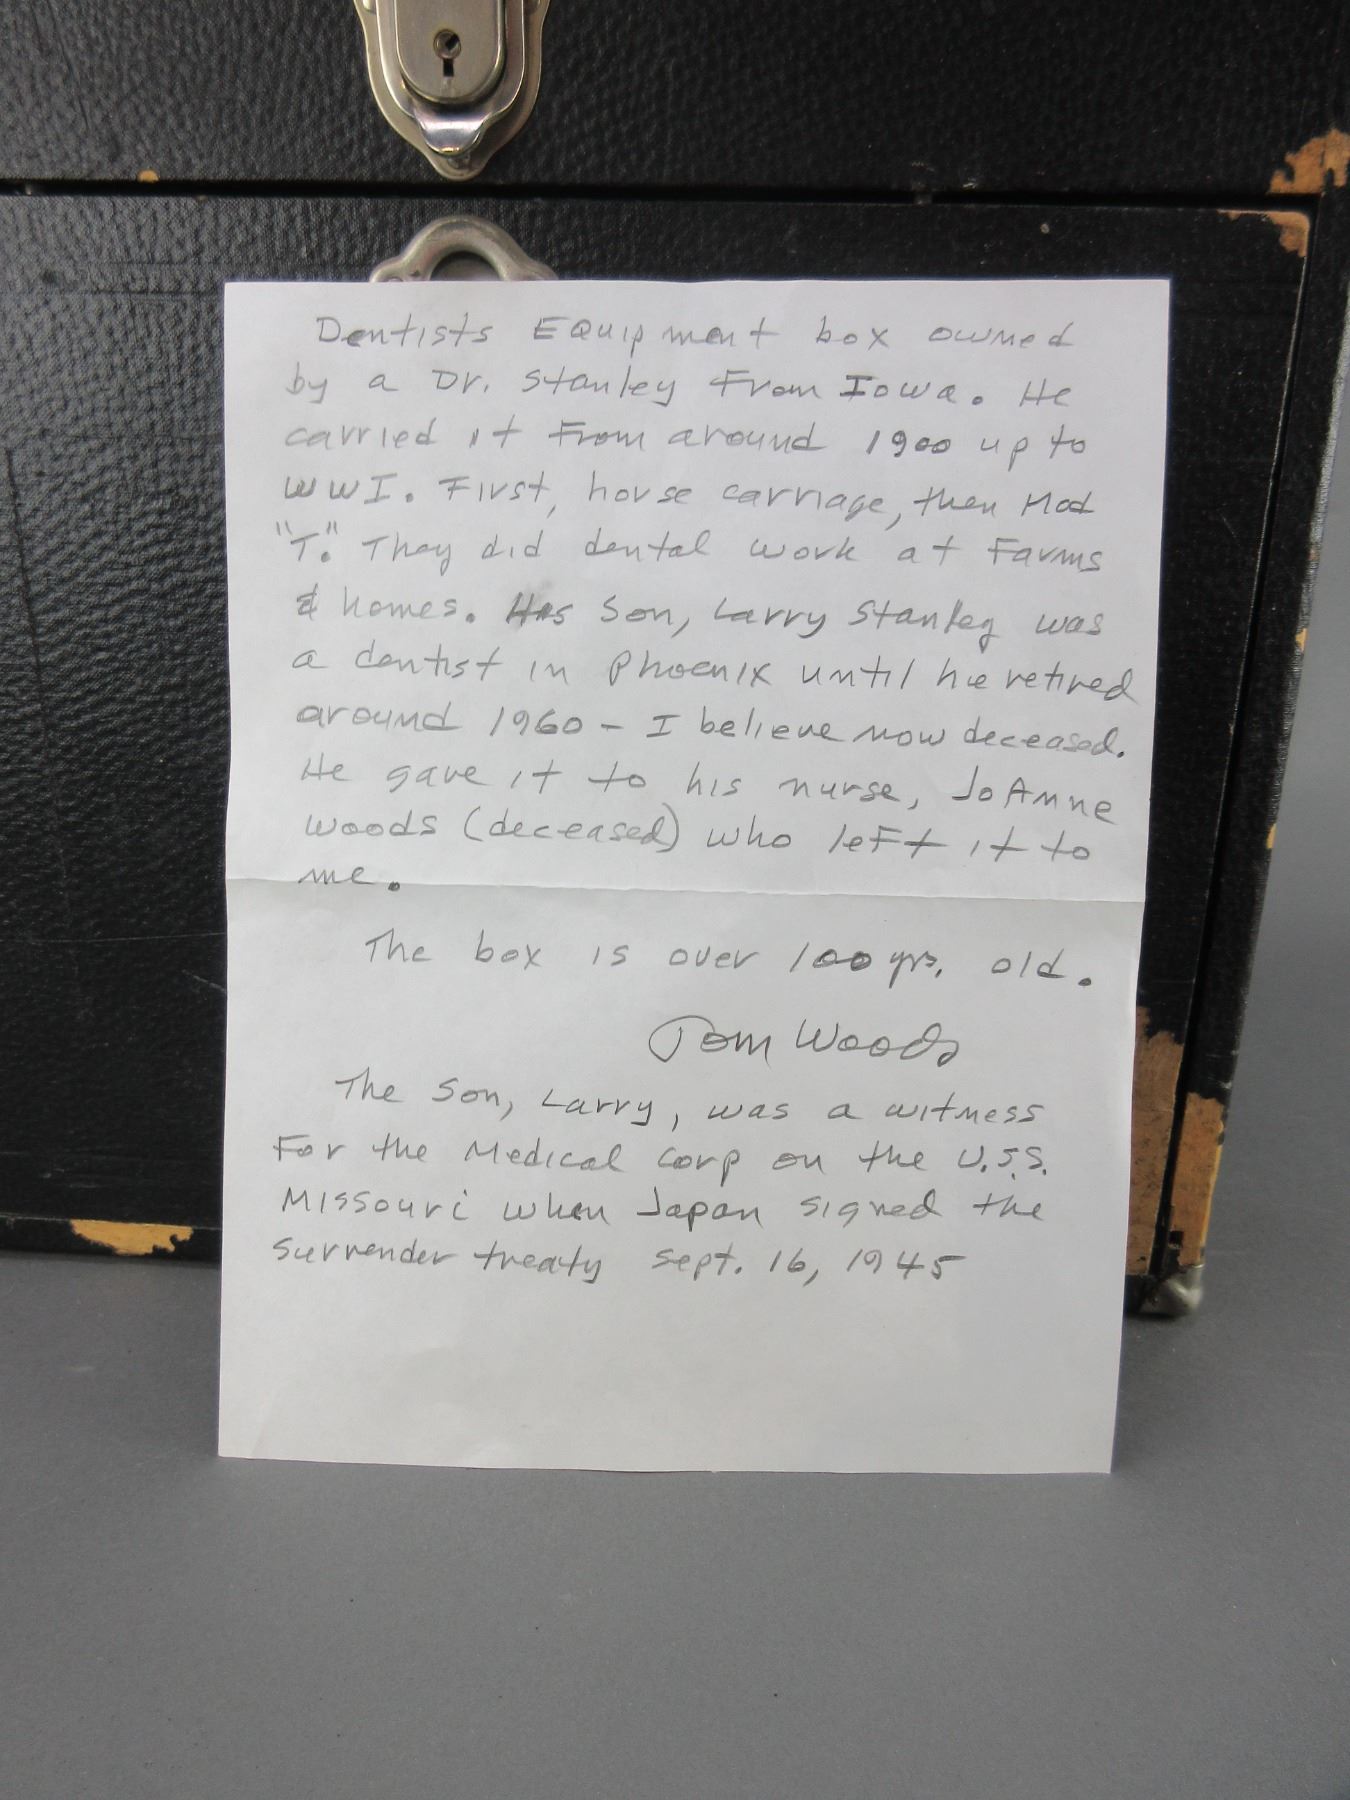 Dentists Equipment box owned
by a Dr. Stanley From Iowa. He
carried it From around 1900 up to
WWI. First, horse carriage, then Mod
"T." They did dental work at Farms
& homes. His Son, Larry Stanley was
a dentist in Phoenix until he retired
around 1960 - I believe now deceased.
He gave it to his nurse, JoAnne
Woods (deceased) who left it to
me.
The box is over 100 yrs. old.
Tom Woods
The Son, Larry, was a witness
For the Medical Corp on the U.S.S.
Missouri when Japan signed the
Surrender treaty Sept. 16, 1945